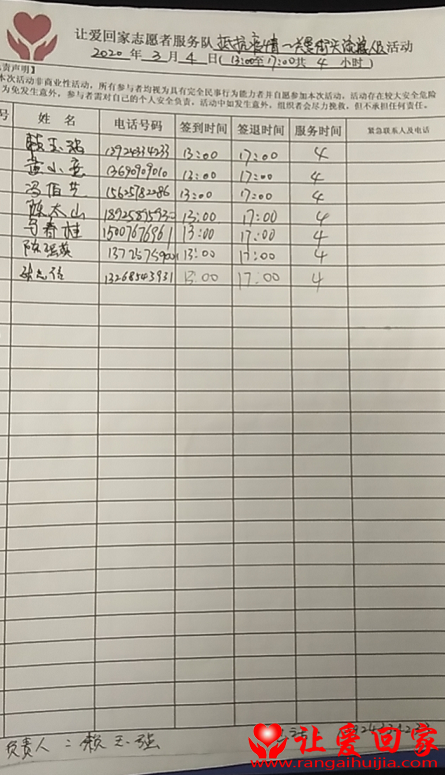 让爱回家志愿者服务队抵抗疫情一关爱街头流浪人员活动
2020年3月4日(13:00至17:00共4小时)
责声明】
本次活动非商业性活动，所有参与者均视为具有完全民事行为能力者并自愿参加本次活动，活动存在较大安全危险
为免发生意外，参与者需对自己的个人安全负责，活动中如发生意外，组织者会尽力挽救，但不承担任何责任。
号 姓 名 电话号码 签到时间 签退时间 服务时间 紧急联系人及电话
赖玉强 13924314233 13:00 17:00 4
黄小亮 13690909010 13:00 17:00 4
冯佰芝 15625782286 13:00 17:00 4
陈太山 18925815930 13:00 17:00 4
马春桂 15007676961 13:00 17:00 4
陈强英 13:00 17:00 4
13268543931 13:00 17:00 4
负责人：赖玉强
让爱回家
www.rangaihuijia.com